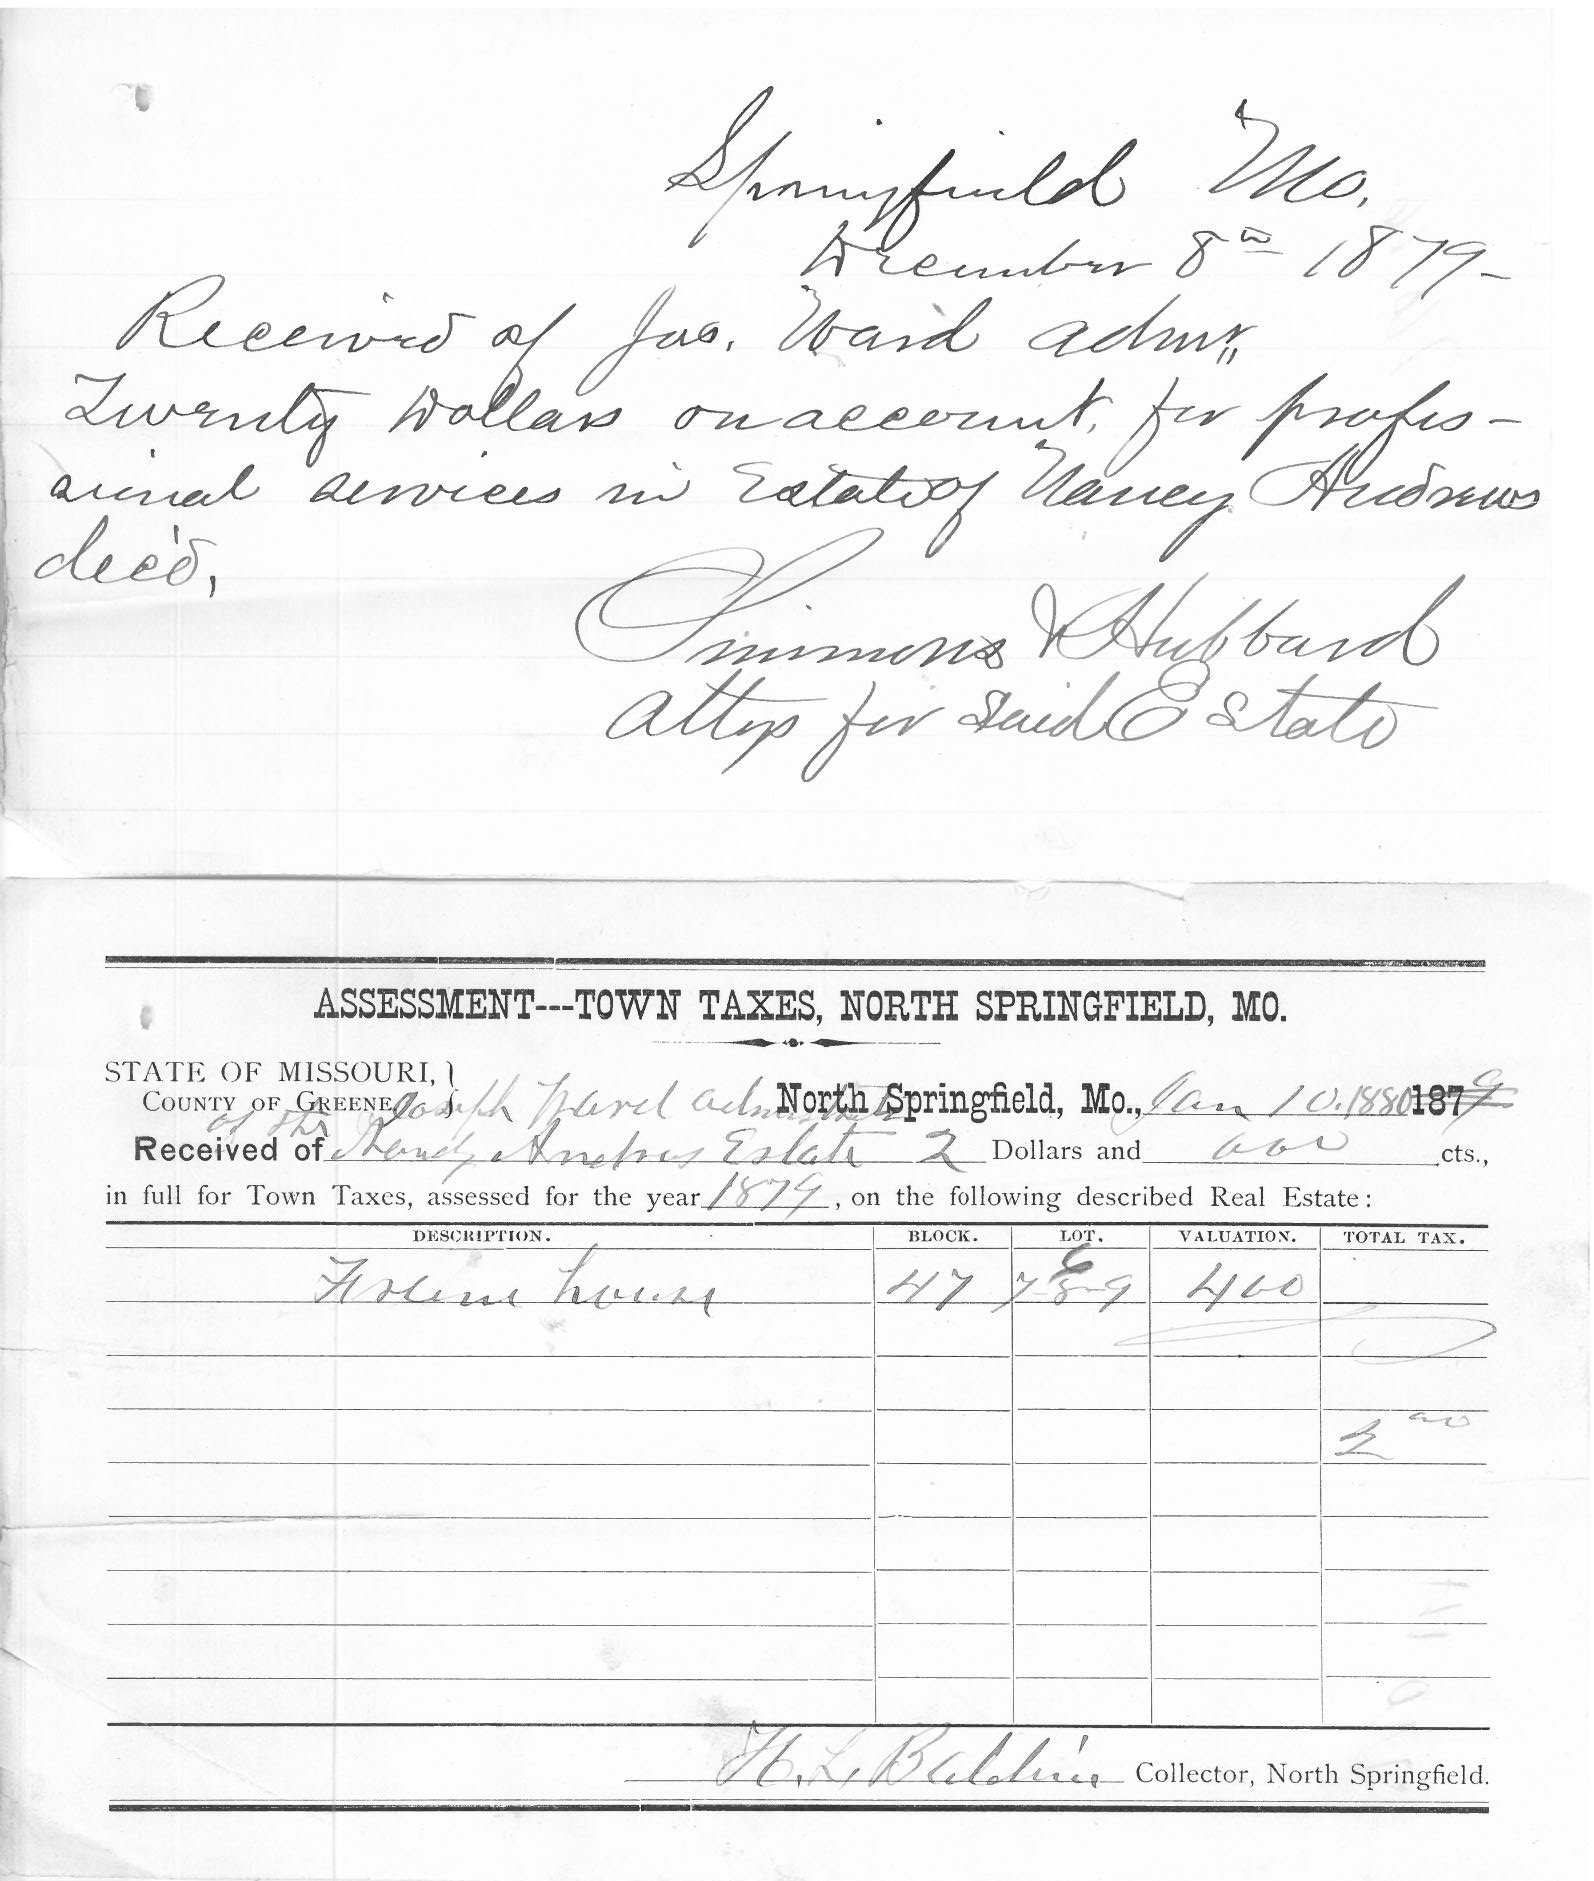 Springfield Mo.
December 8th 1879-
Received of Jos. Ward admr,,
Twenty Dollars on account, for profes-
sional services in Estate of Nancy Andrews
dec'd,
Simmons & Hubbard
attys for said Estate
ASSESSMENT---TOWN TAXES, NORTH SPRINGFIELD, MO.
STATE OF MISSOURI, }
COUNTY OF GREENE, } Joseph Ward North Springfield, Mo., Jan 10. 1880 187
of the
Received of Andrus Estate 2 Dollars and 00 cts.,
in full for Town Taxes, assessed for the year 1879, on the following described Real Estate:
DESCRIPTION. BLOCK. LOT. VALUATION. TOTAL TAX.
house 47 7-8-9 400
2 00
H. L. Collector, North Springfield.